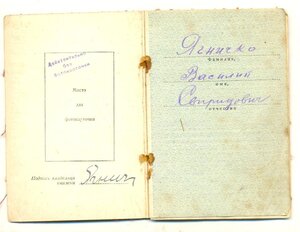 Действительно
без
фотокарточки
Место
для
фотокарточки
Подпись владельца
книжки
Ягничка
фамилия,
Василий
имя,
Свиридович
отчество